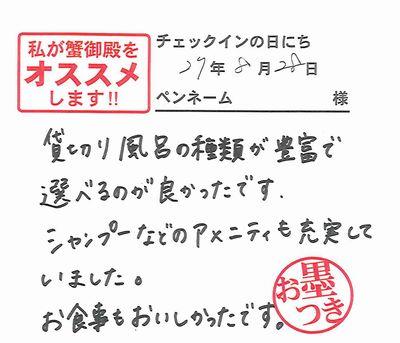 私が蟹御殿を
オススメ
します!!
チェックインの日にち
27年8月28日
ペンネーム 様
貸し切り風呂の種類が豊富で
選べるのが良かったです.
シャンプーなどのアメニティも充実して
いました。
お食事もおいしかったです。
お墨つき